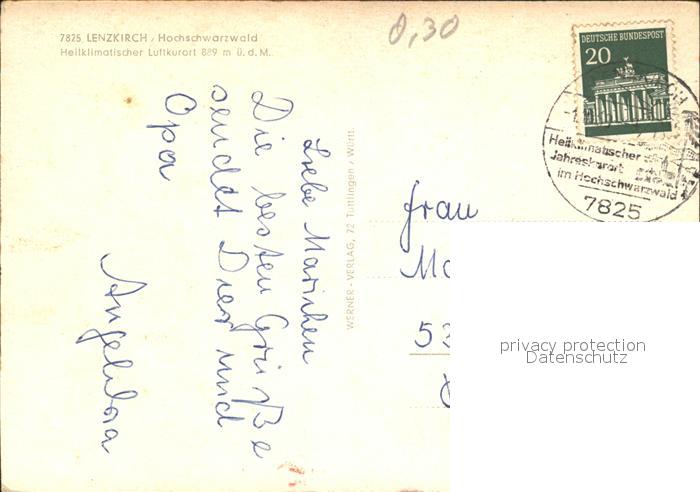 7825 LENZKIRCH / Hochschwarzwald
Heilklimatischer Luftkurort 889 m ü. d. M.
0,30
DEUTSCHE BUNDESPOST
20
Heilklimatischer
Jahreskurort
im Hochschwarzwald
7825
Liebe
Die besten Grüße
sendet Dier und
Opa
WERNER-VERLAG, 72 Tuttlingen / Württ.
Frau
Ma
53
privacy protection
Datenschutz